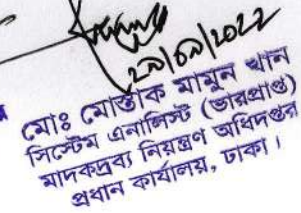 ২৯/০৯/২০২২
মোঃ মোস্তাক মামুন খান
সিস্টেম এনালিস্ট (ভারপ্রাপ্ত)
মাদকদ্রব্য নিয়ন্ত্রণ অধিদপ্তর
প্রধান কার্যালয়, ঢাকা।